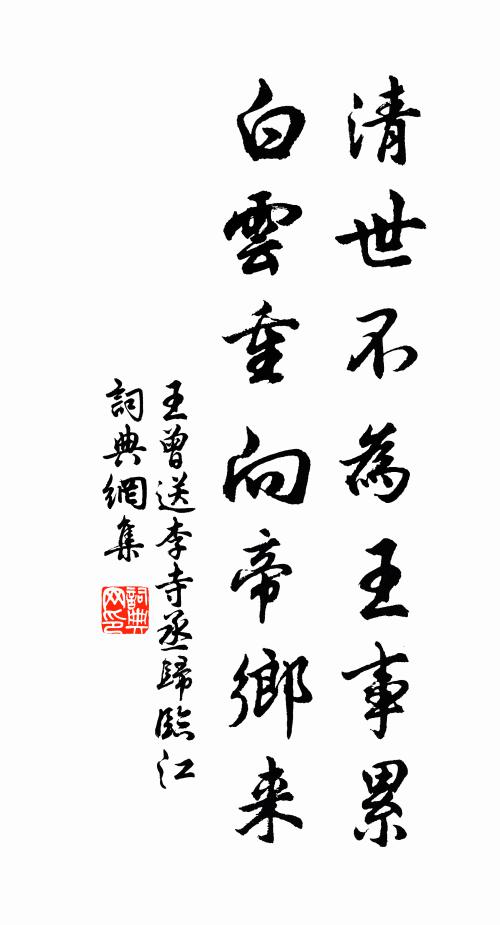 清世不為王事累
白雲重向帝鄉来
王曾送李寺丞歸臨江
詞典網集
詞典
网印